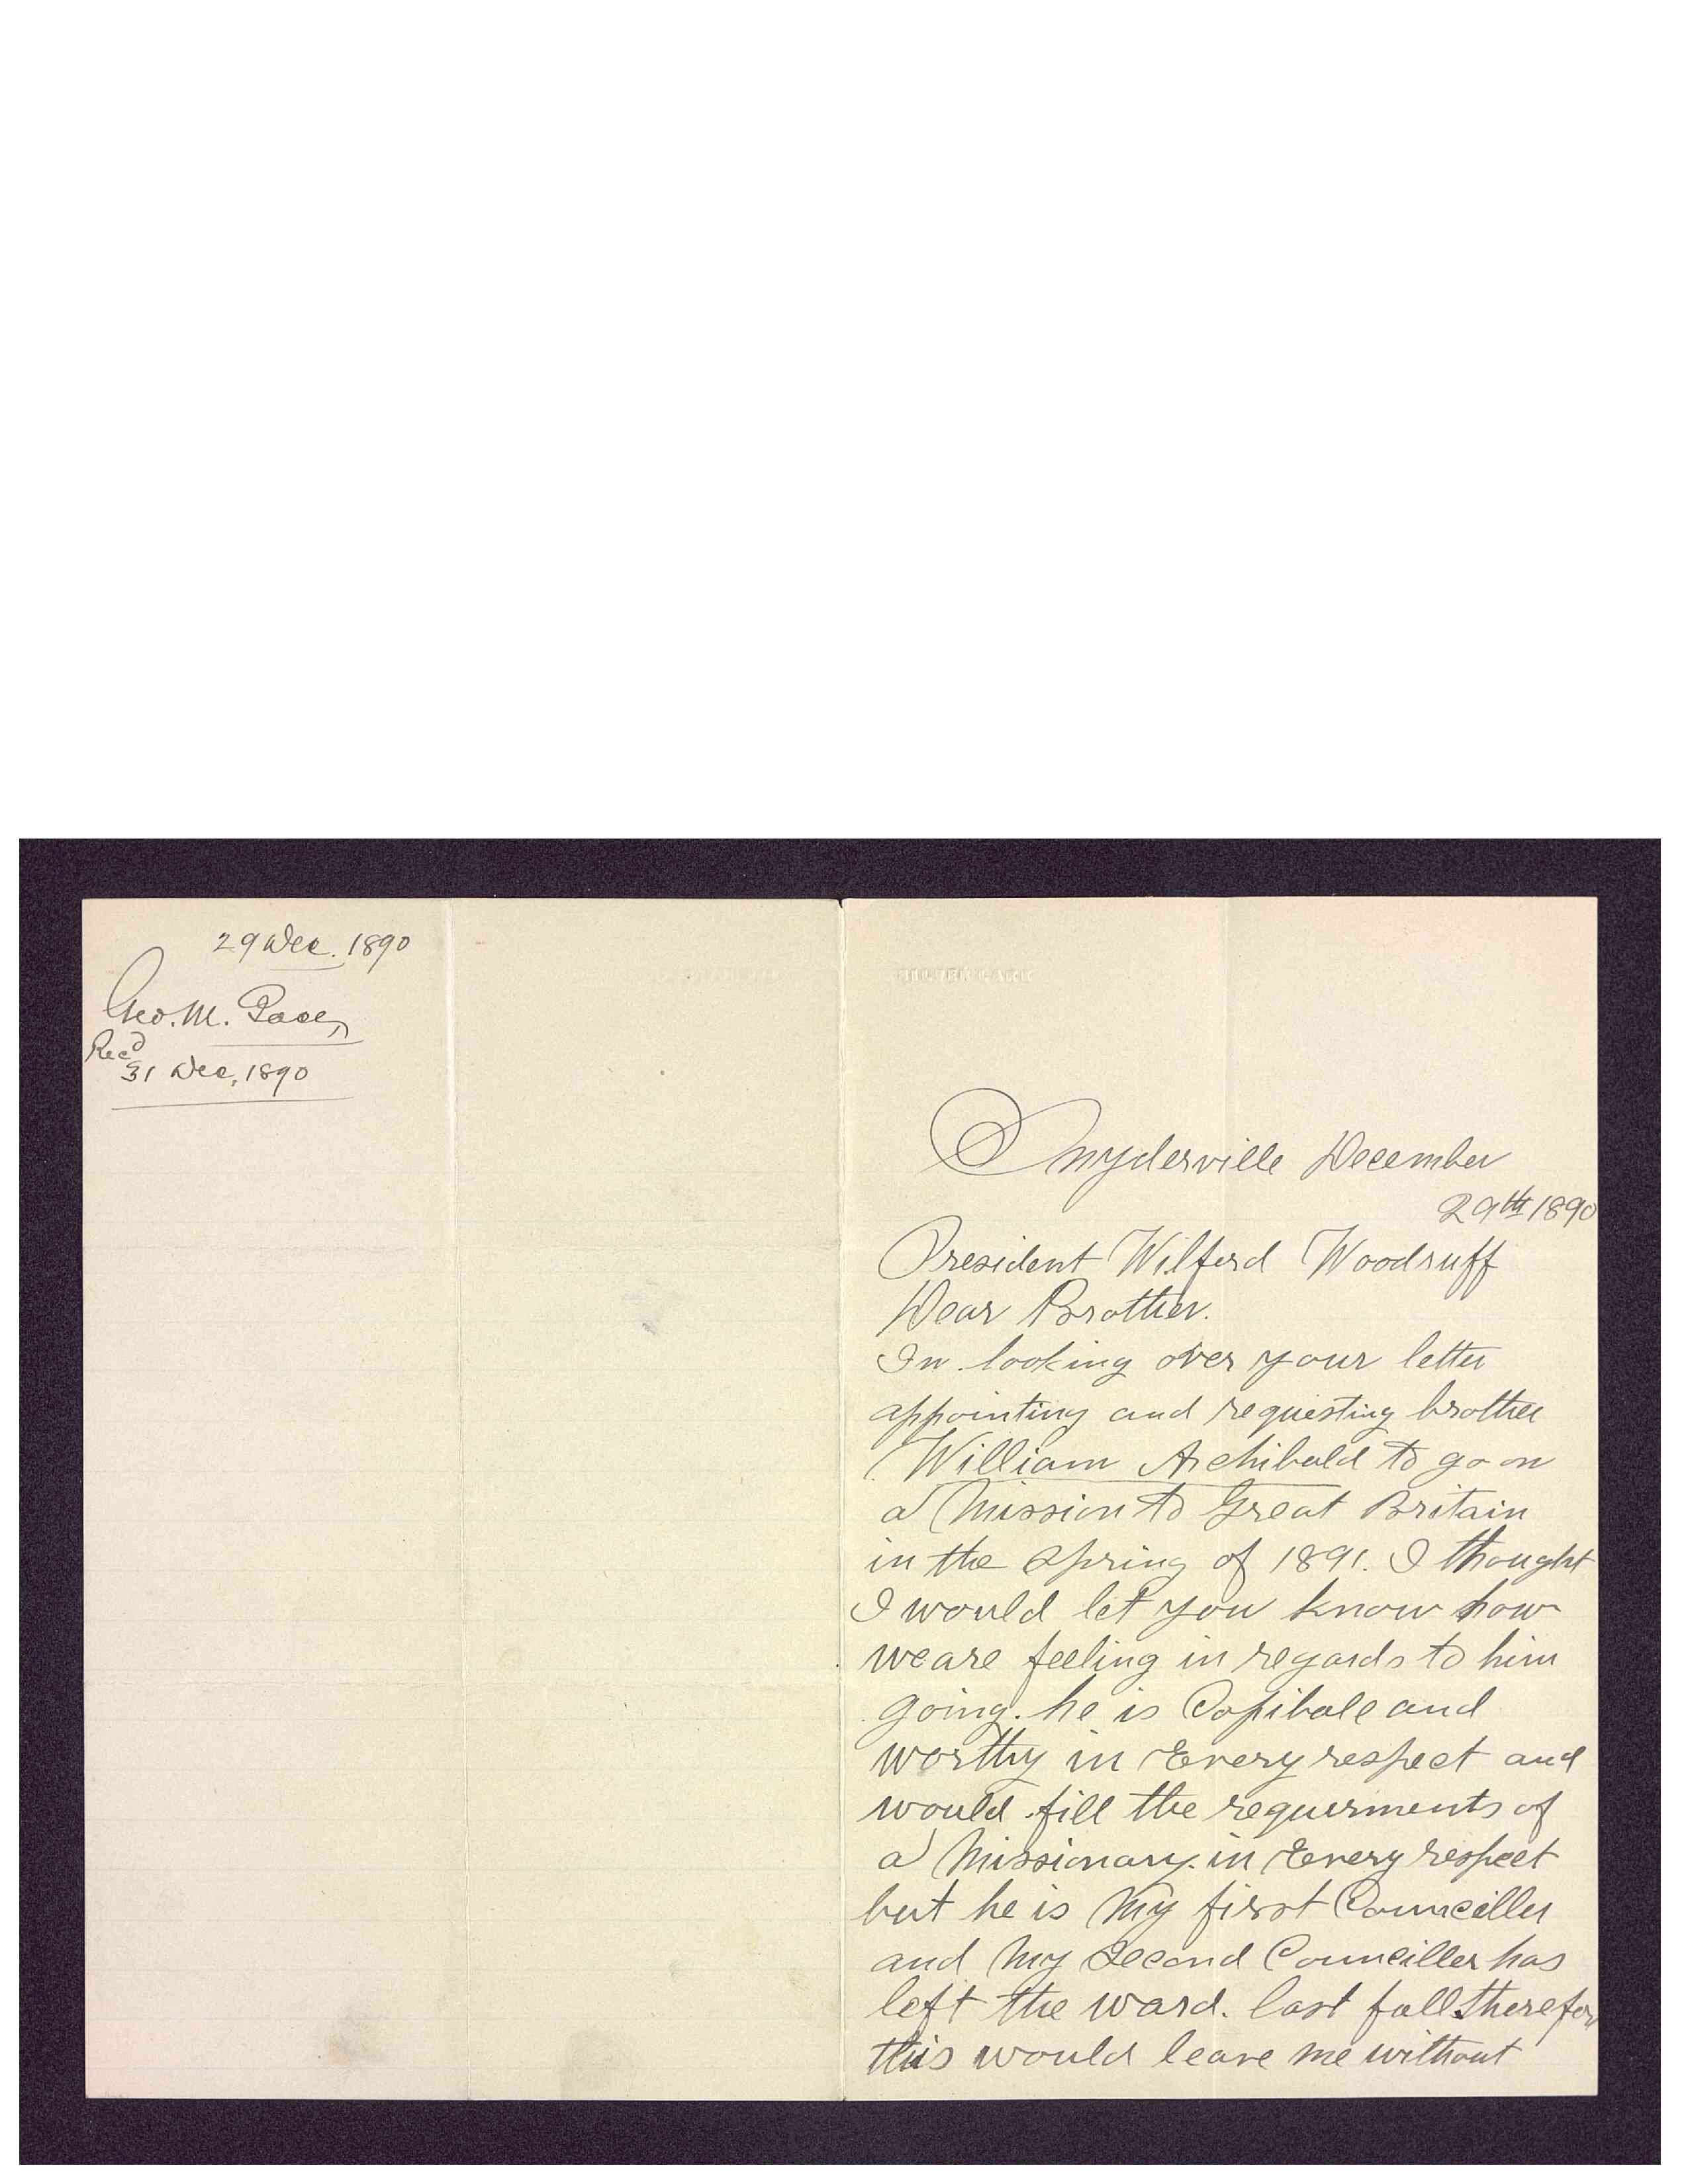 29 Dec. 1890
Geo. M. Pace,
Recd
31 Dec, 1890
Snyderville December
29th 1890
President Wilford Woodruff
Dear Brother.
In looking over your letter
appointing and requesting brother
William Archibald to go on
a Mission to Great Britain
in the Spring of 1891. I thought
I would let you know how
we are feeling in regards to him
going. he is Capibale and
worthy in Every respect and
would fill the requirments of
a Missionary. in Every respect
but he is My first Counciller
and My Second Counciller has
left the ward. last fall therefor
this would leave me without